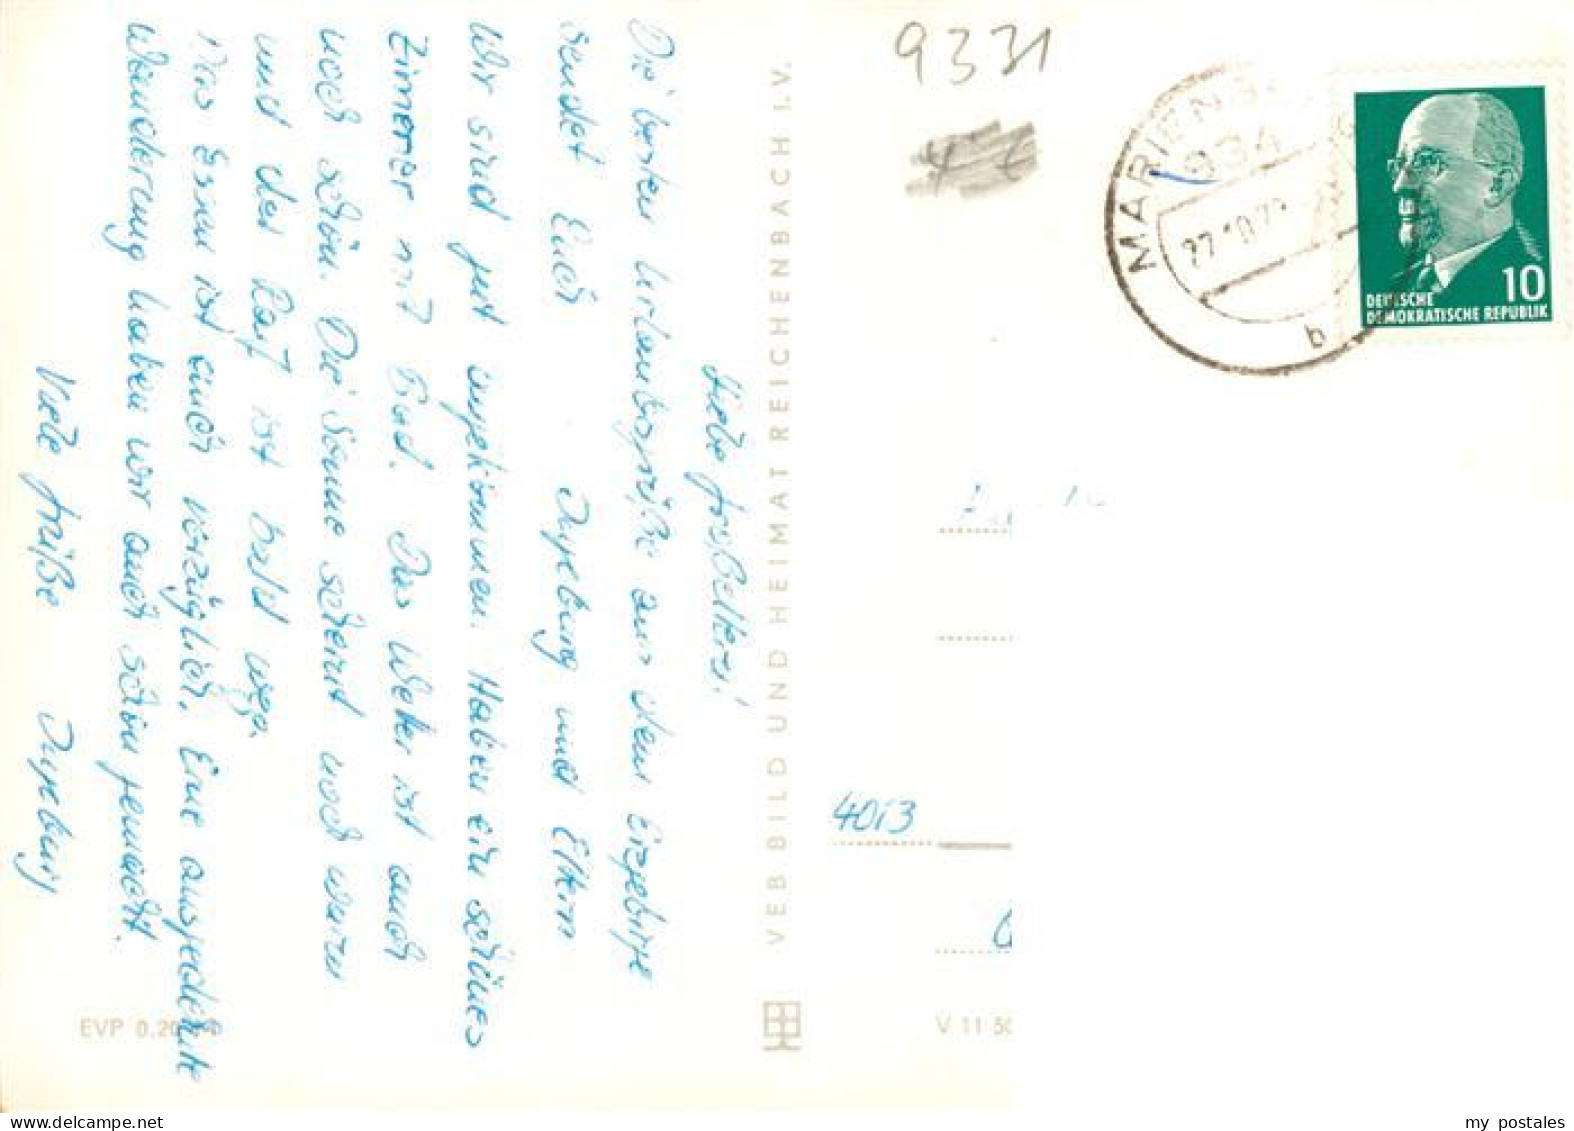 Liebe Großeltern!
Die besten Urlaubsgrüße aus dem Erzgebirge
sendet Euch Ingeburg und Eltern
Wir sind gut angekommen. Haben ein schönes
Zimmer mit Bad. Das Wetter ist auch
noch schön. Die Sonne scheint noch warm
und der Rauf ist bald weg.
Das Essen ist auch vorzüglich. Eine ausgedehnte
Wanderung haben wir auch schon gemacht.
Viele Grüße Ingeburg
EVP 0.20
VEB BILD UND HEIMAT REICHENBACH I.V.
V 11 50
9331
MARIENB
934
27.10.7
b
10
DEUTSCHE
DEMOKRATISCHE REPUBLIK
4013
my postales